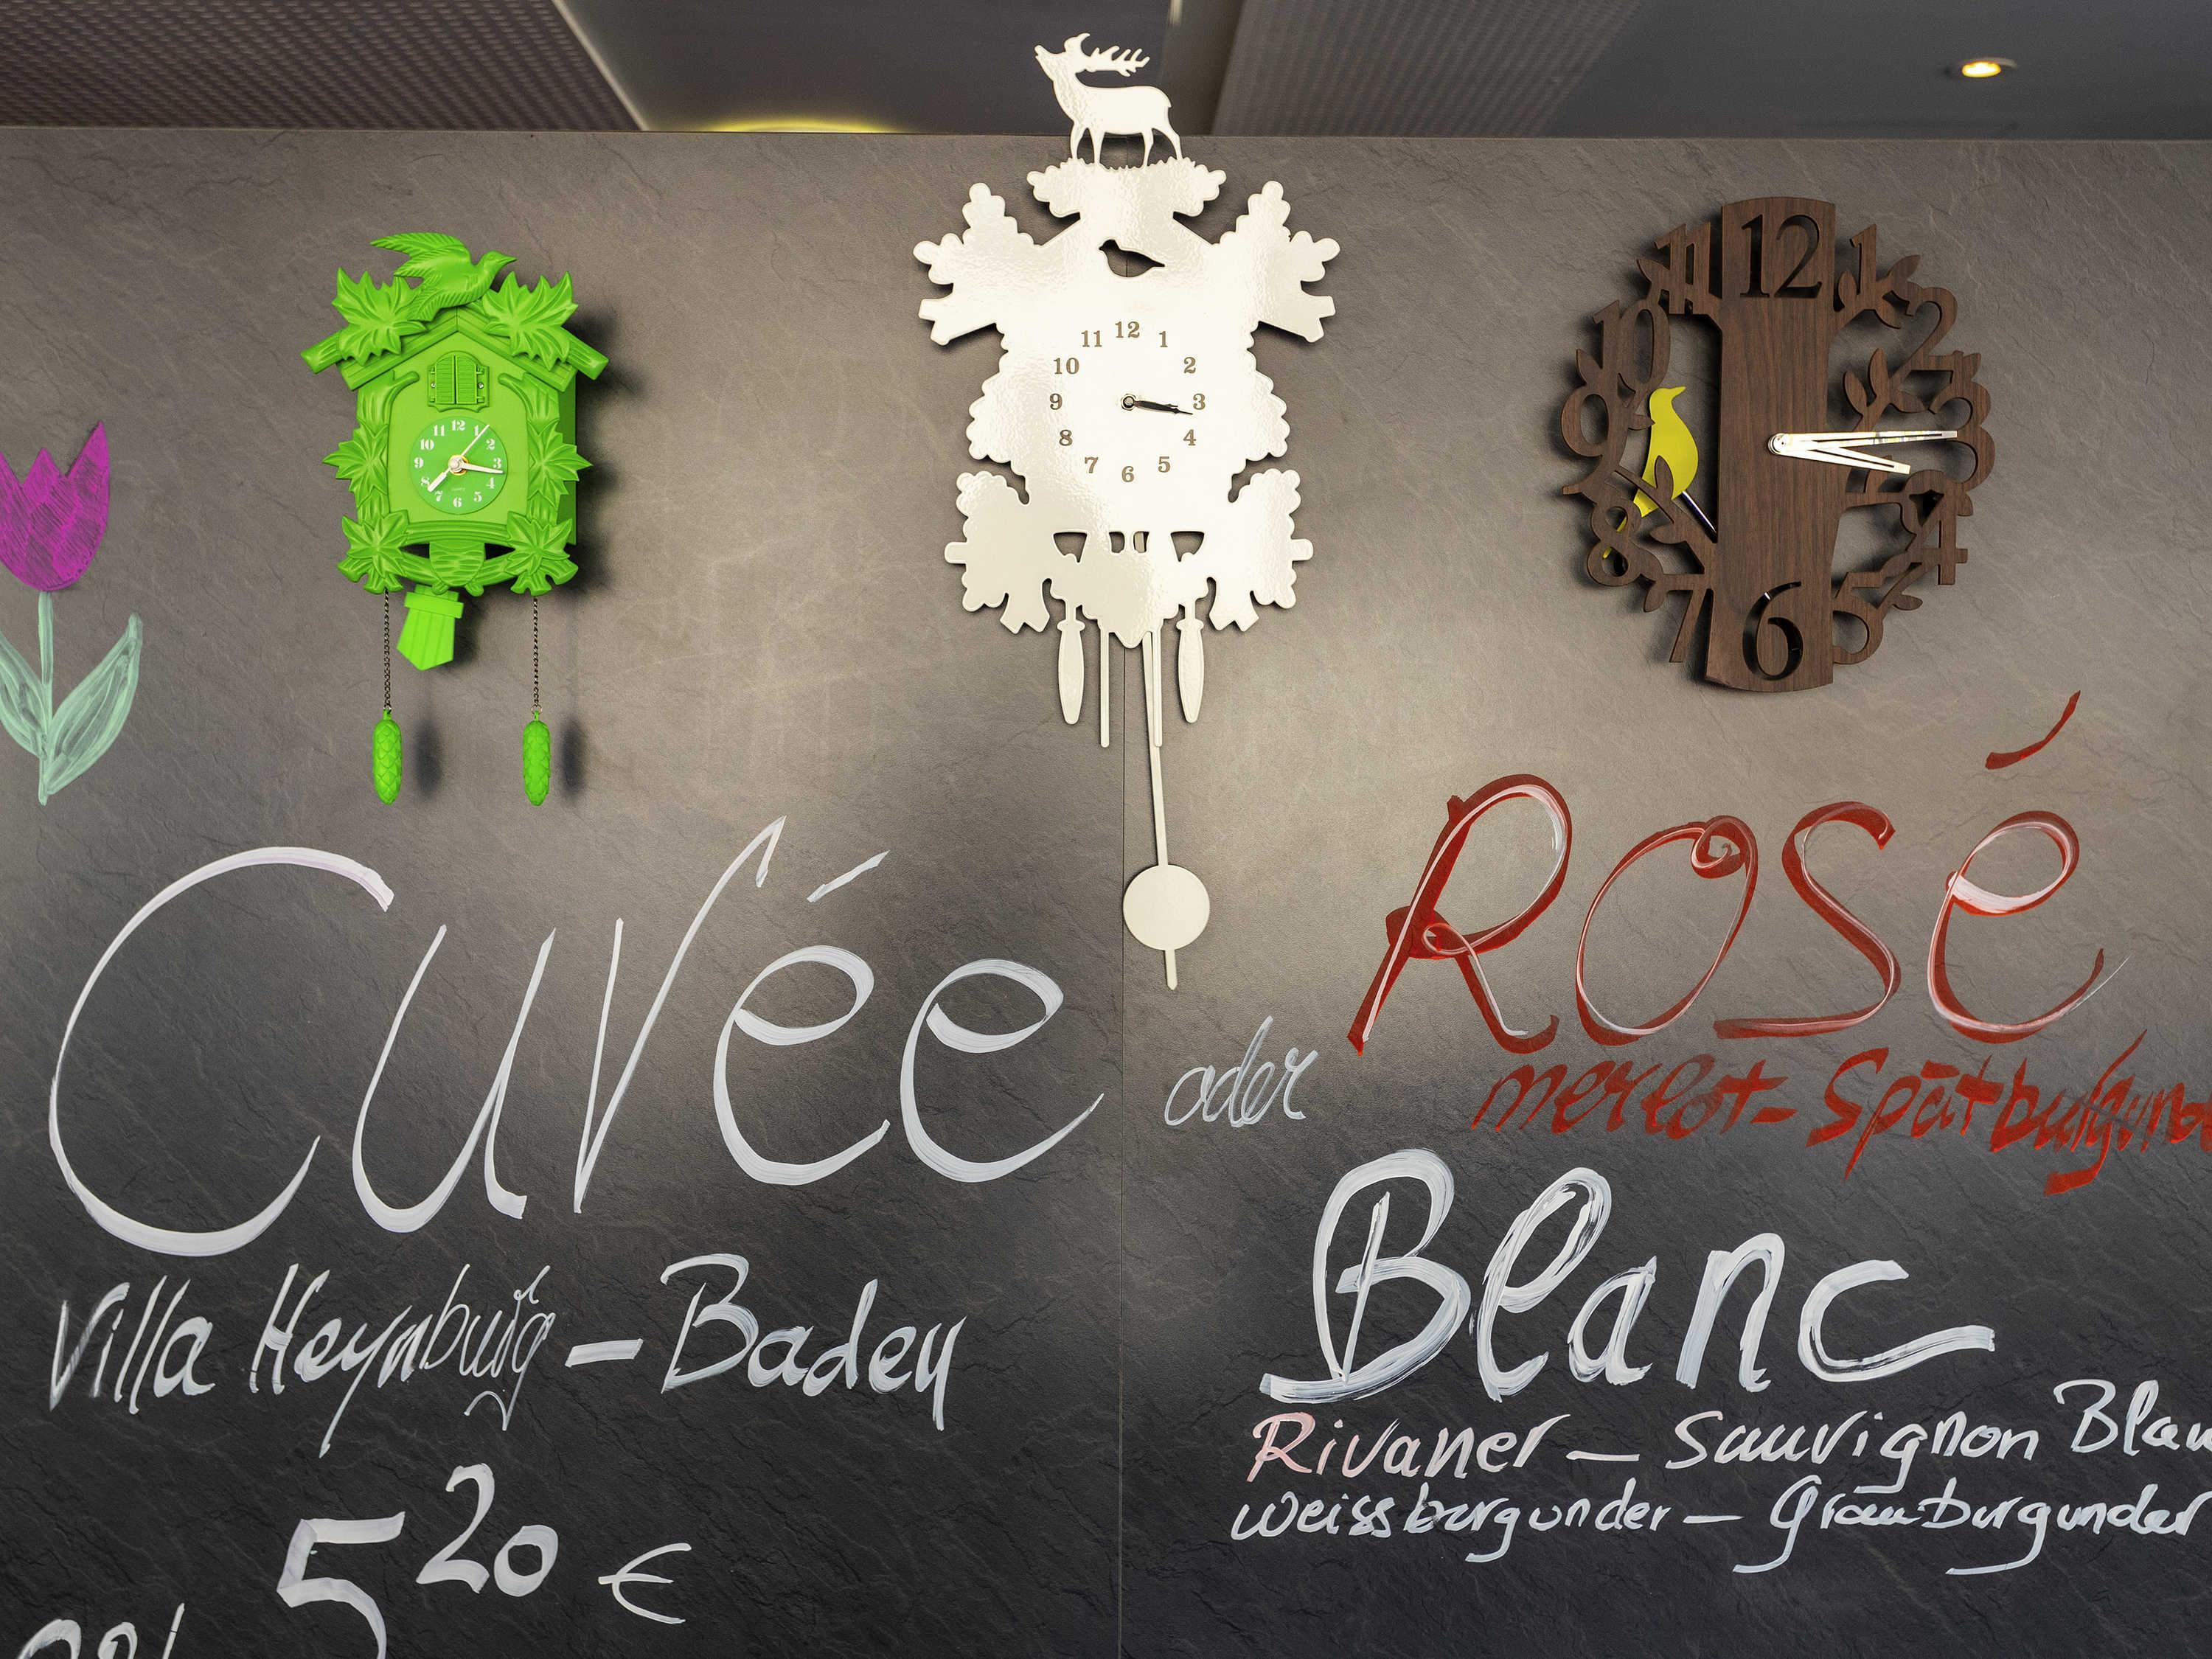 12
11 1
10 2
9 3
8 4
7 5
6
QUARTZ
12
11 1
10 2
9 3
8 4
7 5
6
12
11 1
10 2
9 3
8 4
7 5
6
Cuvée
Villa Heynburg - Baden
5 20 €
oder
Rosé
merlot - Spätburgund
Blanc
Rivaner - Sauvignon Blan
Weissburgunder - Grauburgunder